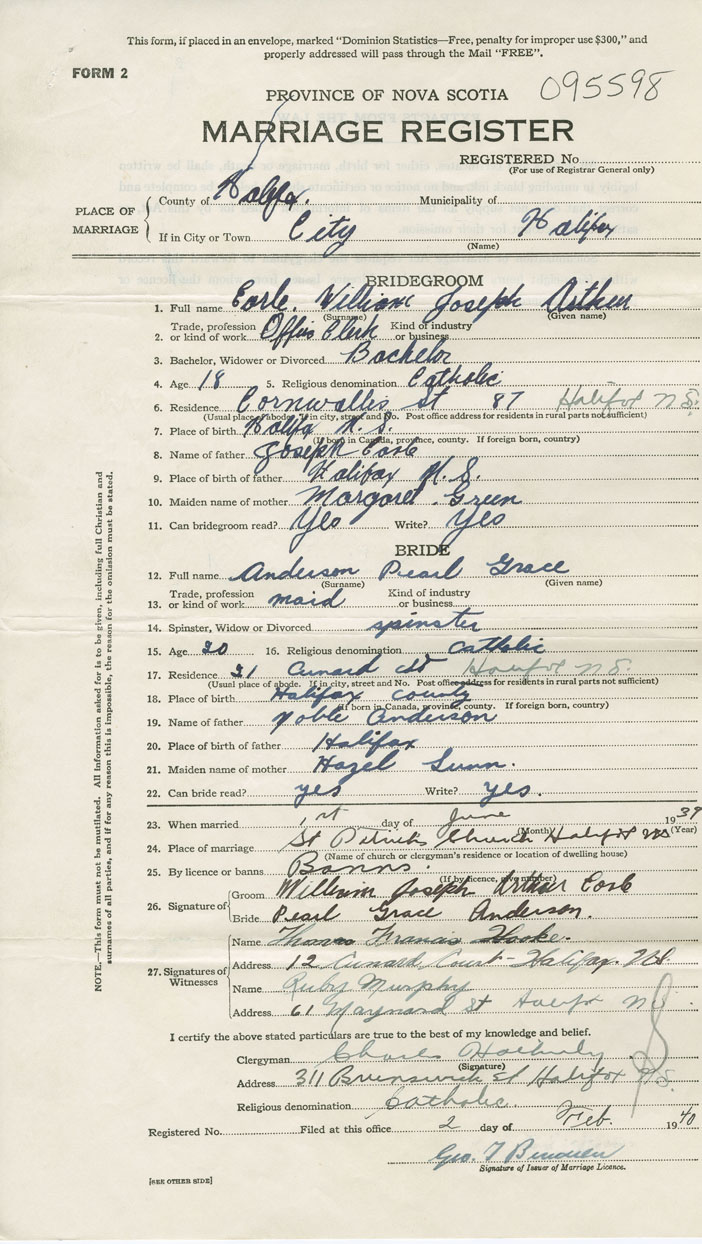 This form, if placed in an envelope, marked “Dominion Statistics—Free, penalty for improper use $300,” and
properly addressed will pass through the Mail “FREE”.
FORM 2
095598
PROVINCE OF NOVA SCOTIA
MARRIAGE REGISTER
REGISTERED No.
(For use of Registrar General only)
PLACE OF MARRIAGE
County of Halifax. Municipality of
If in City or Town City Halifax
(Name)
BRIDEGROOM
1. Full name Earle. William Joseph Arthur
(Surname) (Given name)
2. Trade, profession or kind of work Office Clerk Kind of industry or business
3. Bachelor, Widower or Divorced Bachelor
4. Age 18 5. Religious denomination Catholic
6. Residence Cornwallis St 87 Halifax N.S.
(Usual place of abode. If in city, street and No. Post office address for residents in rural parts not sufficient)
7. Place of birth Halifax N.S.
(If born in Canada, province, county. If foreign born, country)
8. Name of father Joseph Earle
9. Place of birth of father Halifax N.S.
10. Maiden name of mother Margaret Green
11. Can bridegroom read? Yes Write? Yes
BRIDE
12. Full name Anderson Pearl Grace
(Surname) (Given name)
13. Trade, profession or kind of work maid Kind of industry or business
14. Spinster, Widow or Divorced spinster
15. Age 20 16. Religious denomination Catholic
17. Residence 21 Cunard St Halifax N.S.
(Usual place of abode. If in city, street and No. Post office address for residents in rural parts not sufficient)
18. Place of birth Halifax County
(If born in Canada, province, county. If foreign born, country)
19. Name of father Noble Anderson
20. Place of birth of father Halifax
21. Maiden name of mother Hazel
22. Can bride read? yes Write? yes.
23. When married 1st day of June 1939
(Month) (Year)
24. Place of marriage St Patrick's Church Halifax NS
(Name of church or clergyman's residence or location of dwelling house)
25. By licence or banns Banns.
(If by licence, give number)
26. Signature of
Groom William Joseph Arthur Earle
Bride Pearl Grace Anderson.
27. Signatures of Witnesses
Name Thomas Francis
Address 12 Cunard Court - Halifax. N.S.
Name Ruby Murphy
Address 61 Maynard St Halifax N.S.
I certify the above stated particulars are true to the best of my knowledge and belief.
Clergyman Charles
(Signature)
Address 311 Brunswick St Halifax N.S.
Religious denomination Catholic.
Registered No. Filed at this office 2 day of Feb. 1940
Geo. T
Signature of Issuer of Marriage Licence.
[SEE OTHER SIDE]
NOTE.—This form must not be mutilated. All information asked for is to be given, including full Christian and
surnames of all parties, and if for any reason this is impossible, the reason for the omission must be stated.